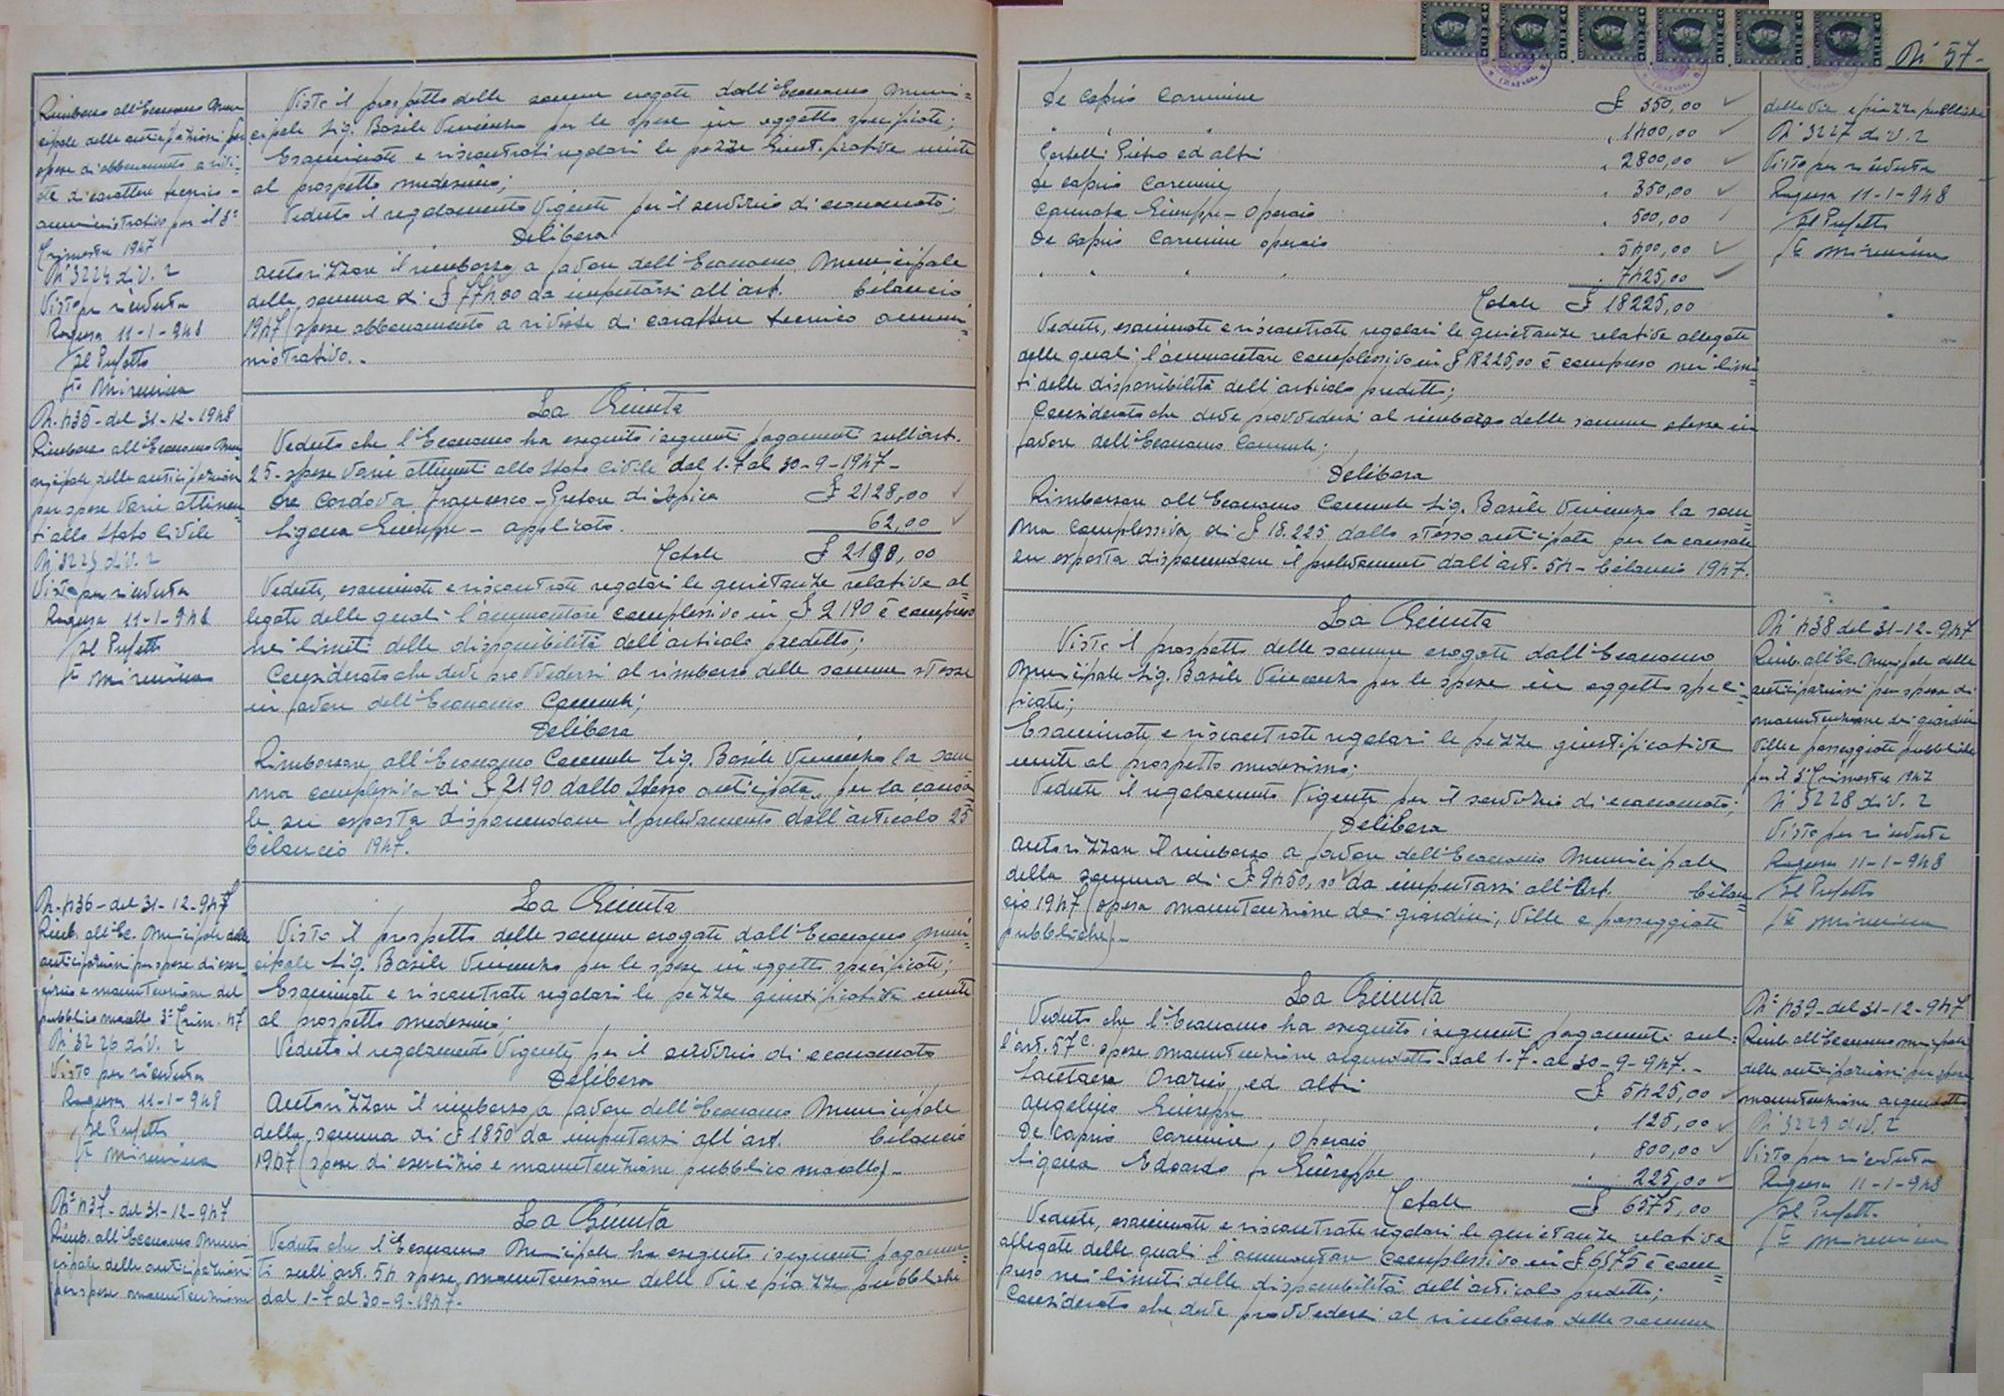 Rimborso all'Economo Muni-
cipale delle anticipazioni per
spese di abbonamento a rivi-
ste di carattere tecnico-
amministrativo per il 3°
Trimestre 1947
N° 3224 div. 2
Visto per ricevuta
Ragusa 11-1-948
Il Prefetto
fto Mirmina
Visto il prospetto delle somme erogate dall'Economo Muni=
cipale Sig. Basile Vincenzo per le spese in oggetto specificate;
Esaminate e riscontrati regolari le pezze giustificative unite
al prospetto medesimo;
Veduto il regolamento Vigente per il servizio di economato;
Delibera
Autorizzare il rimborso a favore dell'Economo Municipale
della somma di £ 77400 da imputarsi all'art. bilancio
1947 (spese abbonamento a riviste di carattere tecnico ammi=
nistrativo.-
N. 435 - del 31-12-1948
Rimborso all'Economo Mu
nicipale delle anticipazioni
per spese varie attinen=
ti allo Stato Civile
N° 3225 div. 2
Visto per ricevuta
Ragusa 11-1-948
Il Prefetto
fto Mirmina
La Giunta
Veduto che l'Economo ha eseguito i seguenti pagamenti sull'art.
25 - spese varie attinenti allo Stato Civile dal 1-7 al 30-9-1947-
Cordova Francesco - Pretore di Ispica £ 2128,00
Ligena Giuseppe - applicato. 62,00
Totale £ 2190,00
Vedute, esaminate e riscontrate regolari le quietanze relative al
legate delle quali l'ammontare complessivo in £ 2190 è compreso
nei limiti delle disponibilità dell'articolo predetto;
Considerato che deve provvedersi al rimborso delle somme stesse
in favore dell'Economo Comunale;
Delibera
Rimborsare all'Economo Comunale Sig. Basile Vincenzo la som=
ma complessiva di £ 2190 dallo stesso anticipata, per la causa
le su esposta disponendone il prelevamento dall'articolo 25
bilancio 1947.
N. 436 - del 31-12-947
Rimb. all'Ec. Municipale delle
anticipazioni per spese di eser
cizio e manutenzione del
pubblico macello 3° Trim. 47
N° 3226 div. 2
Visto per ricevuta
Ragusa 11-1-948
Il Prefetto
fto Mirmina
La Giunta
Visto il prospetto delle somme erogate dall'Economo Muni=
cipale Sig. Basile Vincenzo per le spese in oggetto specificate;
Esaminate e riscontrate regolari le pezze giustificative unite
al prospetto medesimo;
Veduto il regolamento Vigente per il servizio di economato
Delibera
Autorizzare il rimborso a favore dell'Economo Municipale
della somma di £ 1850 da imputarsi all'art. bilancio
1947 (spese di esercizio e manutenzione pubblico macello).-
N° 437 - del 31-12-947
Rimb. all'Economo Muni
cipale delle anticipazioni
per spese manutenzione
La Giunta
Veduto che l'Economo Municipale ha eseguito i seguenti pagamen=
ti sull'art. 54 spese manutenzione delle Vie e piazze pubbliche
dal 1-7 al 30-9-1947.-
N° 57-
De Caprio Carmine £ 350,00
" " " " 1400,00
Pietro ed altri " 2800,00
De Caprio Carmine " 350,00
Cannata Giuseppe - Operaio " 500,00
De Caprio Carmine operaio " 5400,00
" " " " " 7425,00
Totale £ 18225,00
Vedute, esaminate e riscontrate regolari le quietanze relative allegate
delle quali l'ammontare complessivo in £ 18225,00 è compreso nei limi=
ti delle disponibilità dell'articolo predetto;
Considerato che deve provvedersi al rimborso delle somme stesse in
favore dell'Economo Comunale;
Delibera
Rimborsare all'Economo Comunale Sig. Basile Vincenzo la som=
ma complessiva di £ 18.225 dallo stesso anticipata per la causale
su esposta disponendone il prelevamento dall'art. 54 - bilancio 1947.
delle Vie e piazze pubbliche
N° 3227 div. 2
Visto per ricevuta
Ragusa 11-1-948
Il Prefetto
fto Mirmina
La Giunta
Visto il prospetto delle somme erogate dall'Economo
Municipale Sig. Basile Vincenzo per le spese in oggetto speci=
ficate;
Esaminate e riscontrate regolari le pezze giustificative
unite al prospetto medesimo;
Veduto il regolamento Vigente per il servizio di economato;
Delibera
Autorizzare il rimborso a favore dell'Economo Municipale
della somma di £ 9450,00 da imputarsi all'Art. bilan=
cio 1947 (spesa manutenzione dei giardini, Ville e passeggiate
pubbliche).-
N° 438 del 31-12-947
Rimb. all'Ec. Municipale delle
anticipazioni per spesa di
manutenzione dei giardini
Ville e passeggiate pubbliche
per il 3° Trimestre 1947
N° 3228 div. 2
Visto per ricevuta
Ragusa 11-1-948
Il Prefetto
fto Mirmina
La Giunta
Veduto che l'Economo ha eseguito i seguenti pagamenti sul=
l'art. 57 c. spese manutenzione acquedotto - dal 1-7- al 30-9-947.-
Orazio, ed altri £ 5425,00
Angelino Giuseppe " 125,00
De Caprio Carmine, Operaio " 800,00
Ligena Edoardo fu Giuseppe " 225,00
Totale £ 6575,00
Vedute, esaminate e riscontrate regolari le quietanze relative
allegate delle quali l'ammontare complessivo in £ 6575 è com=
preso nei limiti delle disponibilità dell'articolo predetto;
Considerato che deve provvedersi al rimborso delle somme
N° 439 - del 31-12-947
Rimb. all'Economo municipale
delle anticipazioni per spese
manutenzione acquedotto
N° 3229 div. 2
Visto per ricevuta
Ragusa 11-1-948
Il Prefetto
fto Mirmina